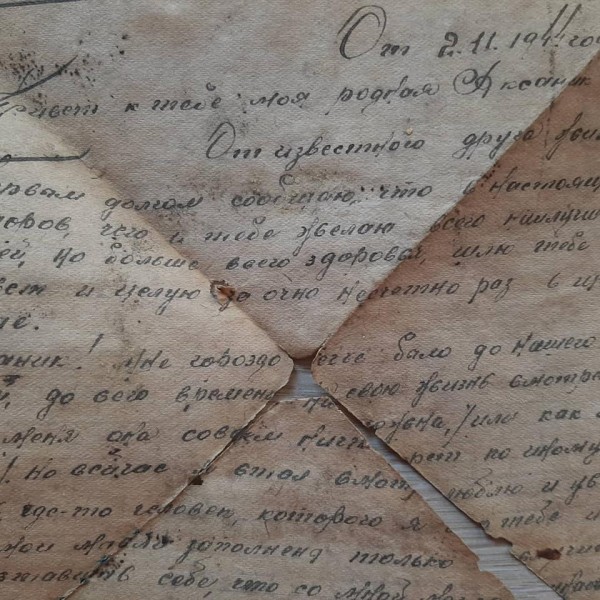 От 2.11.1944 го
Привет к тебе моя родная Аксаник
От известного друга жиз
ервам долгом сообщаю, что в настоящ
доров, чего и тебе желаю всего наилучш
ей, но больше всего здоровая, шлю тебе
вет и целую за очно несчетно раз в
аник! Мне гороздо легче было до нашего
до сего времени на свою жизнь смотре
меня она совсем или как
! Но сейчас я стал люблю и ув
, где-то человек, которого я тебе
мои мысли заполнена только
дставить себе, что со мной